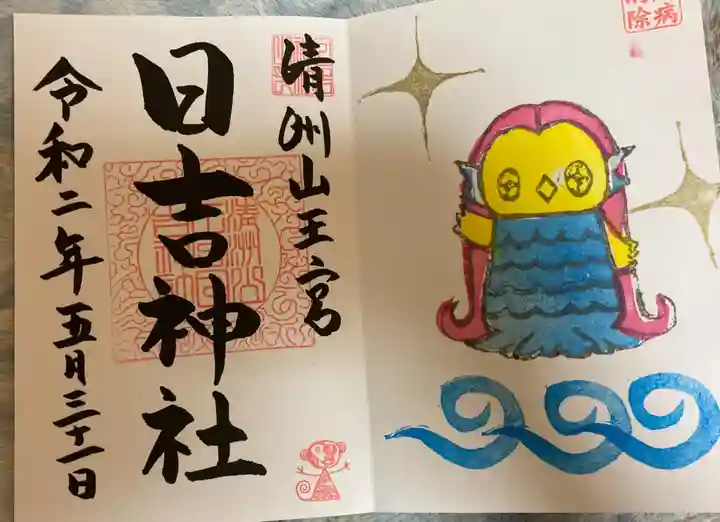 清州山王宮
日吉神社
令和二年五月三十一日
病
除